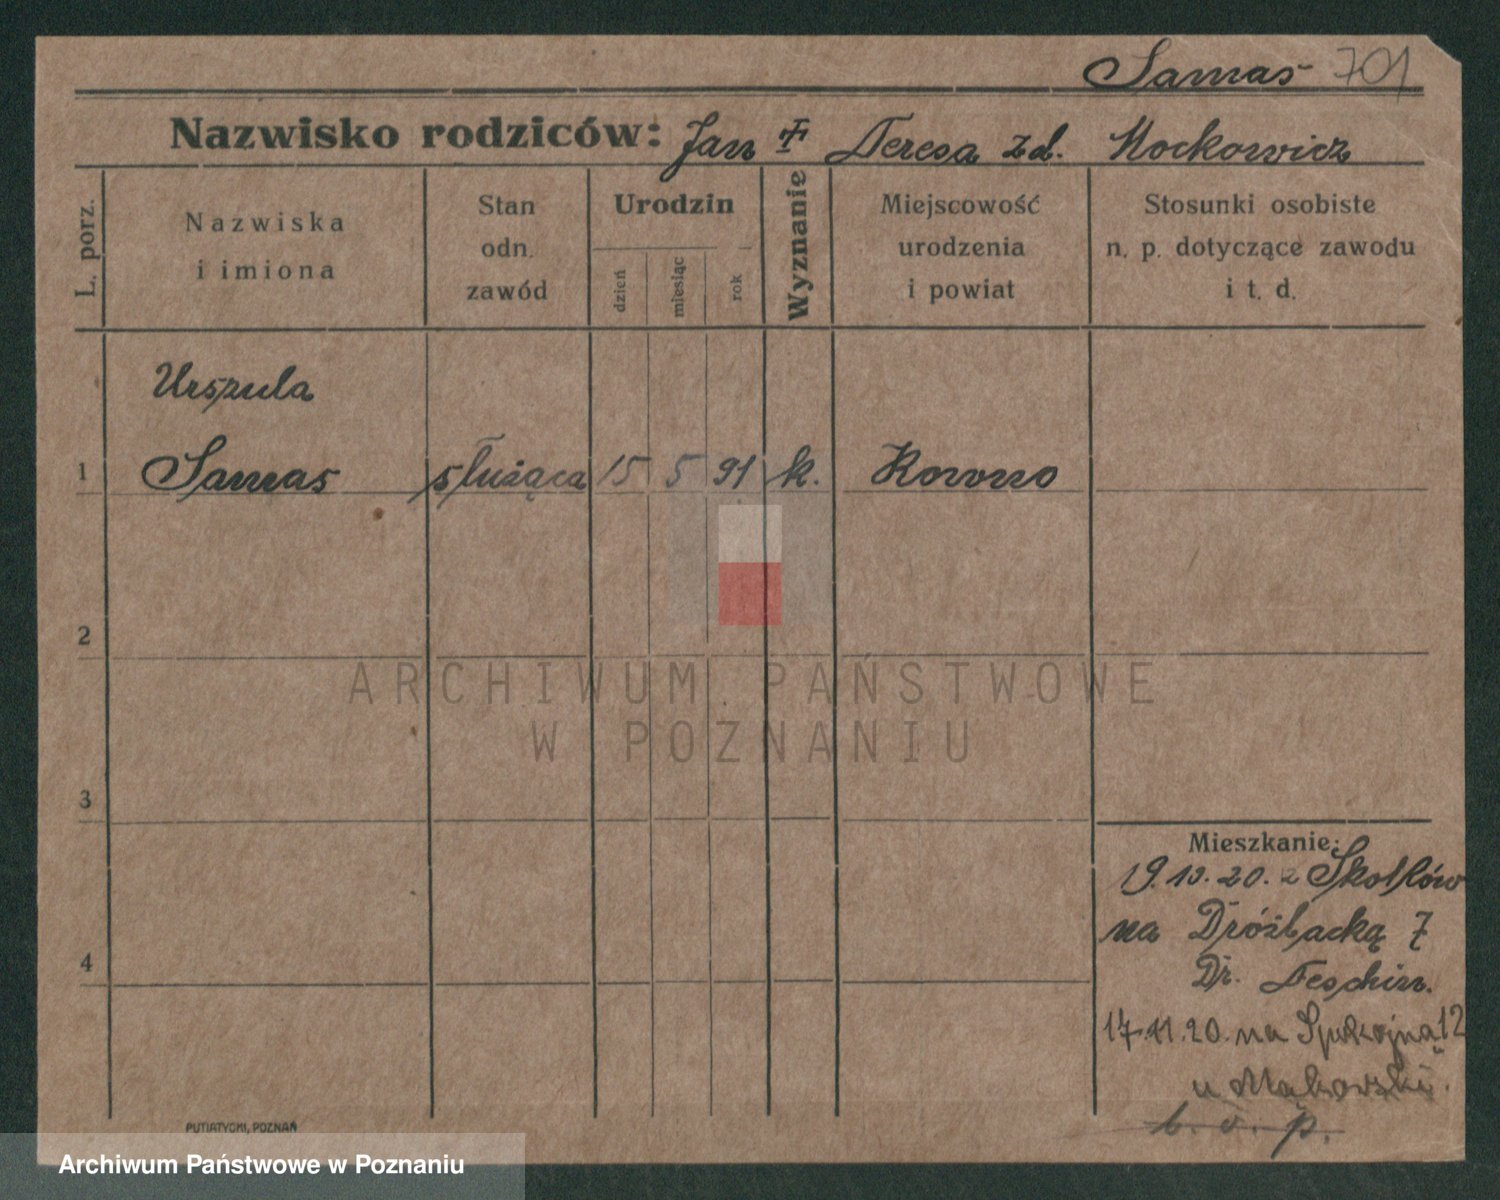 Samas 701
Nazwisko rodziców: Jan i Teresa zd. Mockowicz
L. porz.
Nazwiska
i imiona
Stan
odn.
zawód
Urodzin
dzień
miesiąc
rok
Wyznanie
Miejscowość
urodzenia
i powiat
Stosunki osobiste
n. p. dotyczące zawodu
i t. d.
Urszula
1 Samas służąca 15 5 91 k. Kowno
2
3
4
Mieszkanie:
19.10.20. z Skotłów
na Dróżbacką 7
Dr. Teschin.
17.11.20. na Spokojną 12
u Mąkowski.
b. o. p.
PUTIATYCKI, POZNAŃ
ARCHIWUM PAŃSTWOWE
W POZNANIU
Archiwum Państwowe w Poznaniu